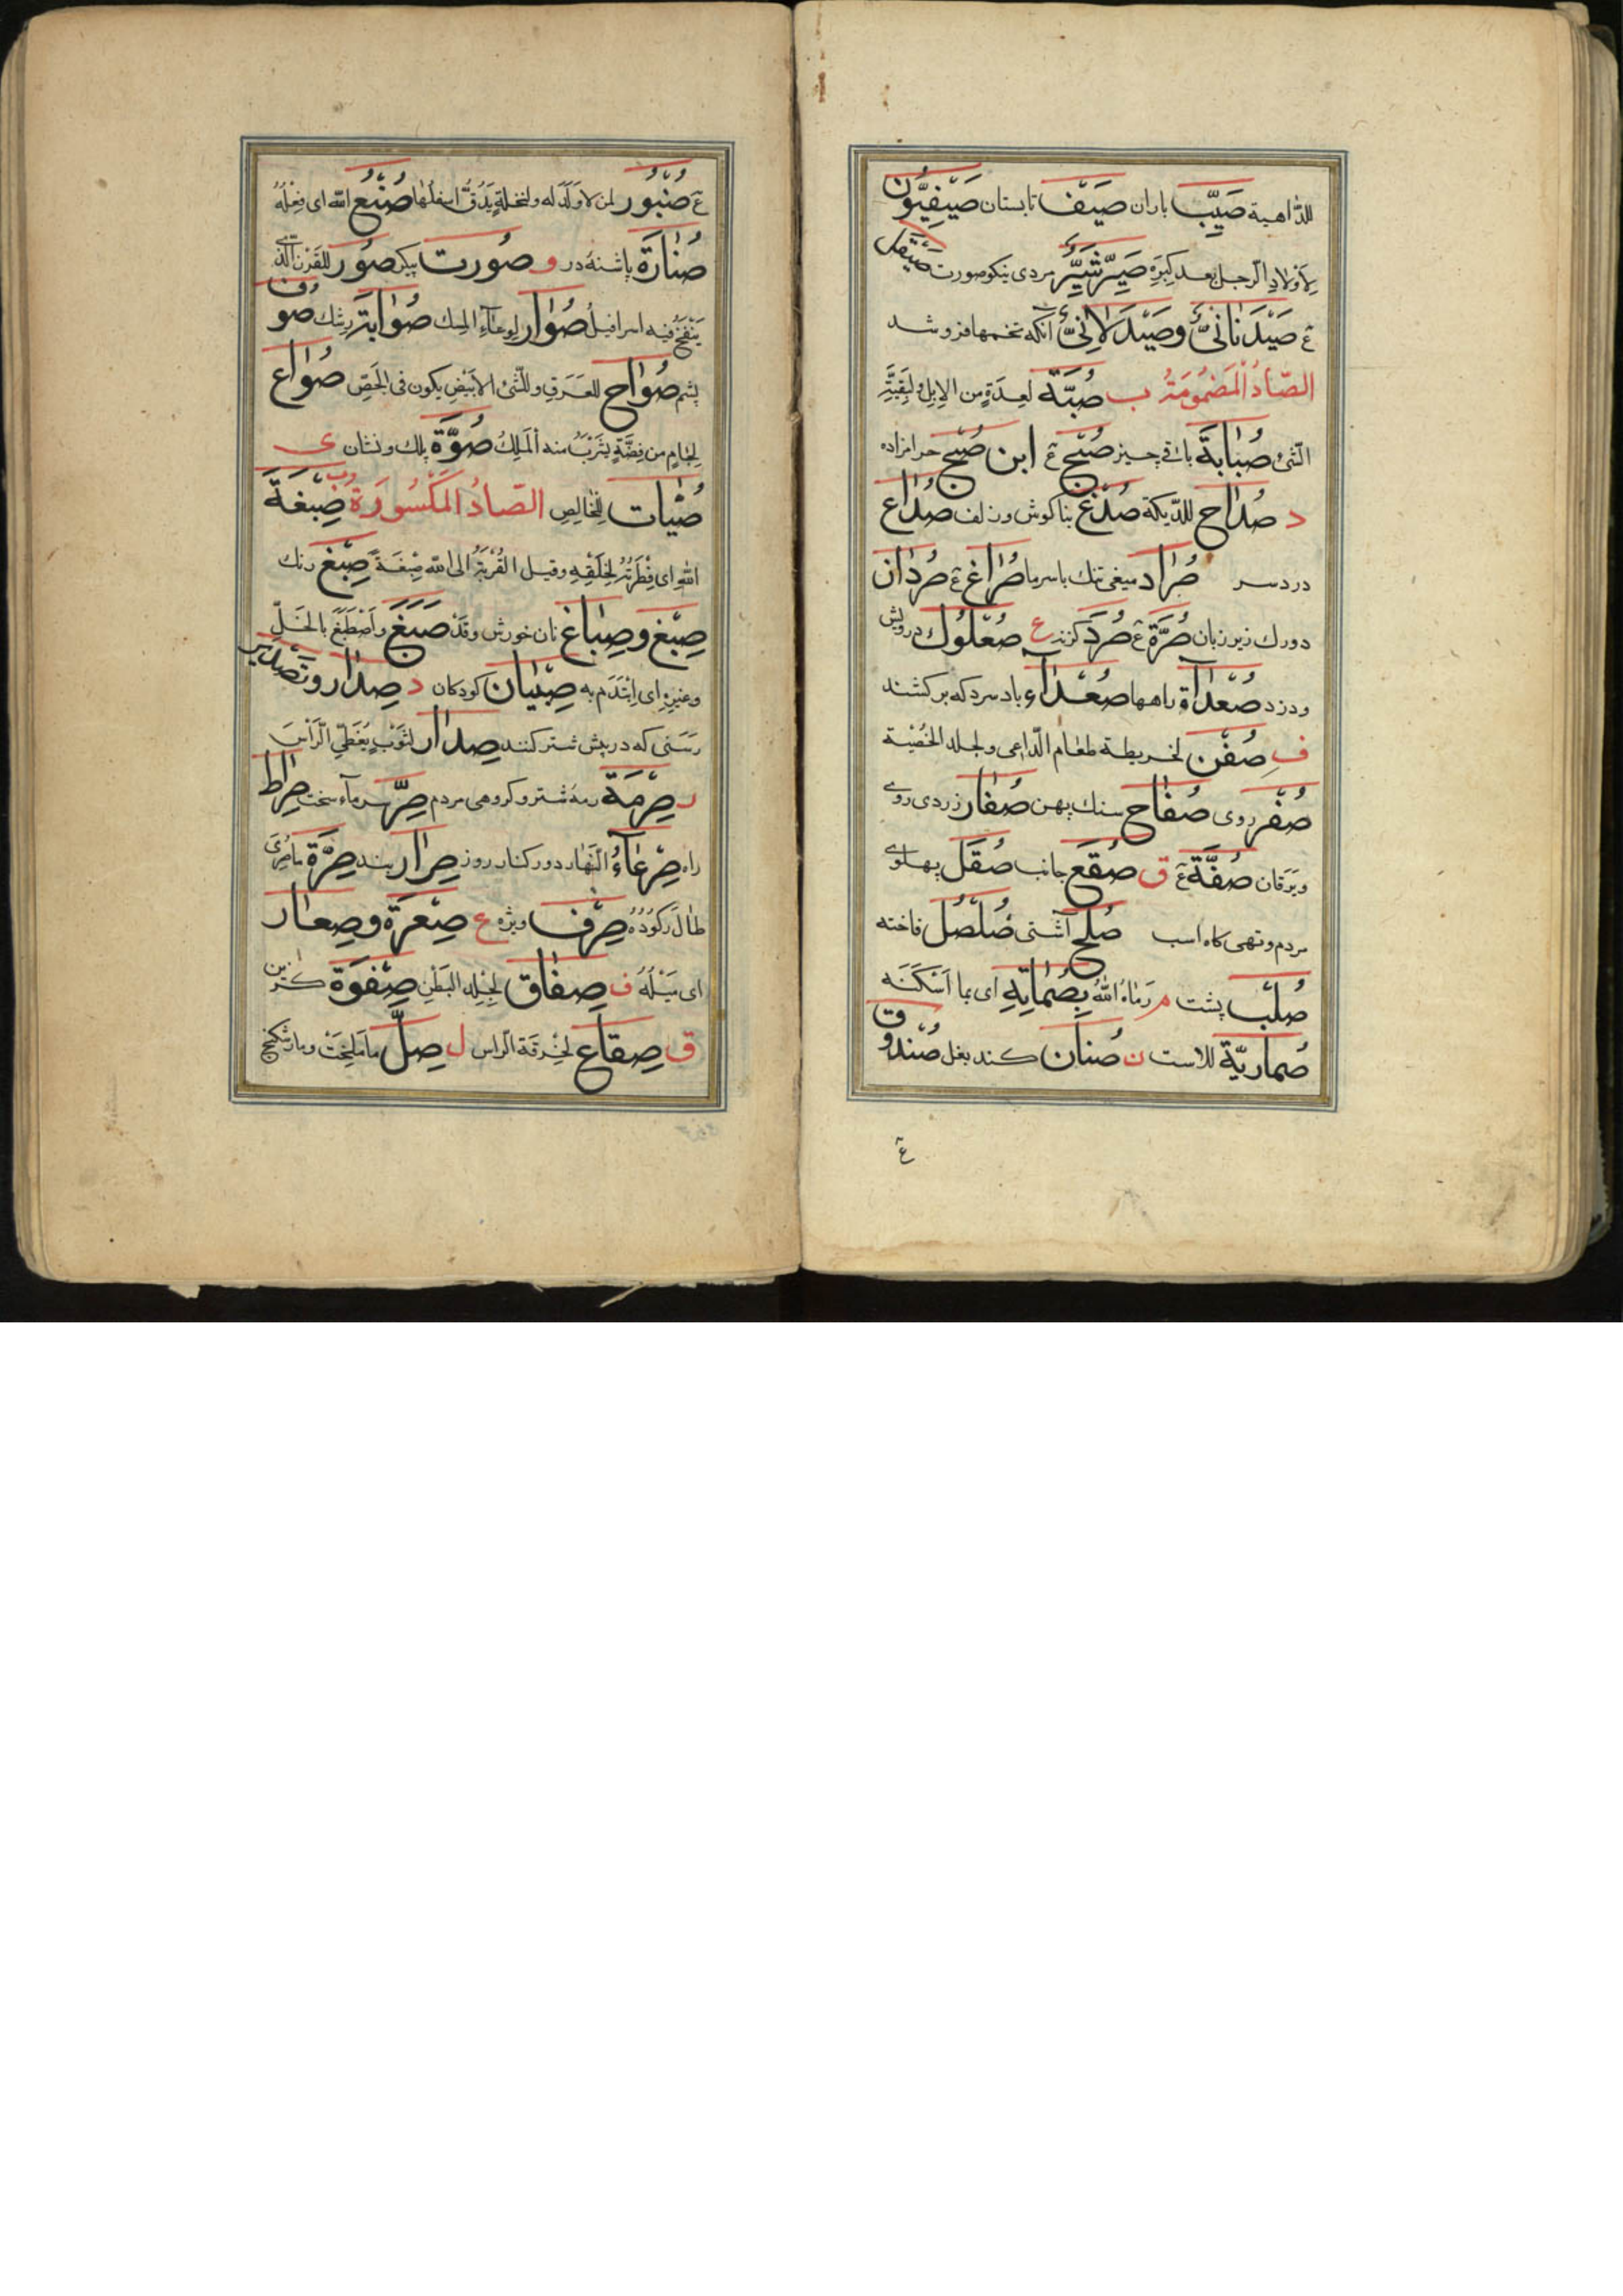 للدّاهية صَيِّب باران صَيْف تابستان صَيْفِيُّون
لِأَوْلادِ الرّجل بعد كِبَرِه صَيِّر شَيِّر مردى نيكوصورت صَيْقَل
عٓ صَيْدَنانىّ وصَيْدَلانِىّ آنكه تخمها فروشد
الصّادُ الْمَضْمُومَةُ ب صُبَّة لعِدَةٍ من الابِل ولِبَقِيَّةِ
الشّئ صُبَابَة باقى چيز صُبْح عٓ ابن صُبْح حرامزاده
د صُدَاح للدّيكة صُدْغ بناكوش وزلف صُدَاع
دردسر صُرَاد ميغى تنك باسرما صُرَاغ عٓ صُرَدَان
دورك زير زبان صُرَّة عٓ صُرَد ع صُعْلُوك درويش
ودزد صُعَدَآة راهها صُعَدَآء باد سرد كه بركشند
ف صُفْن لخريطة طعام الرّاعى ولجلد الخُصْية
صُفْر روى صُفَاح سنك پهن صُفَار زردى روى
ويرقان صُفَّة عٓ ق صُقْع جانب صُقْل پهلوى
مردم وتهى كاه اسب صُلْح آشتى صُلْصُل فاخته
صُلْب پشت م رَمَاهُ اللّٰهُ بِصُمَاتِهِ اى بما اَسْكَتَهُ
صُمَارِيَّة للاست ن صُنَان كند بغل صُنْدُوق
عٓ
عٓ صُنْبُور لمن لا وَلَدَ له ولنخلةٍ يَدُقُّ اسفلُها صُنْع اللّٰه اى فِعْلُهُ
صُنَارَة پاشنهٔ در و صُورت پيكر صُور للقَرْن الّذى
يَنْفَخُ فيه اسرافيلُ صُوَار لوِعَآءِ المِسك صُوَابَة رشك صُوف
پشم صُوَاح للعَرَقِ وللشّئ الابْيَضِ يكون فى الجَصِّ صُوَاع
لِجَامٍ من فِضَّةٍ يَشْرَبُ منه المَلِكُ صُوَّة پلك ونشان ى
صُيَّات لِلْخَالِصِ الصّادُ المَكْسُورَة وب صِبْغَة
اللّٰهِ اى فِطْرَتُهُ لِخَلْقِهِ وقيل القُرْبَةُ الى اللّٰه صِبْغَةً صِبْغ رنك
صِبْغ وصِبَاغ نان خورش وقَدْ صَبَغَ وَاَصْطَبَغَ بالخَلِّ
وغيرِهِ اى اِئْتَدَمَ به صِبْيَان كودكان د صِدَار وتَصْدير
رَسَنى كه در پيش شتر كنند صِدَار لثَوْبٍ يُغَطّى الرّأسَ
ر صِرْمَة رمهٔ شتر وكروهى مردم صِرّ سرماء سخت صِرَاط
راه صِرْعَآءُ النّهار دو كنار روز صِرَار بند صِرَّة
طَالَ رُكُودُهُ صِرْف ويژه ع صِعَرَة وصِعَار
اى مَيْلُهُ ف صِفَاق لِجِلْدِ البَطْنِ صِفْوَة كزين
ق صِقَاع لخِرْقَة الرّاس ل صِلّ ومار شكنج